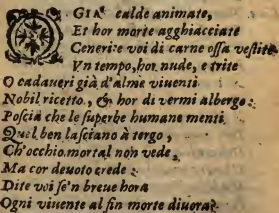 O GIA' calde animate,
Et hor morte agghiacciate
Ceneri: e voi di carne ossa vestite
Vn tempo, hor nude, e trite
O cadaueri già d'alme viuenti
Nobil ricetto, & hor di vermi albergo:
Poscia che le superbe humane menti
Quel ben lasciano à tergo,
Ch'occhio mortal non vede;
Ma cor deuoto crede:
Dite voi se'n breue hora
Ogni viuente al fin morte diuora?